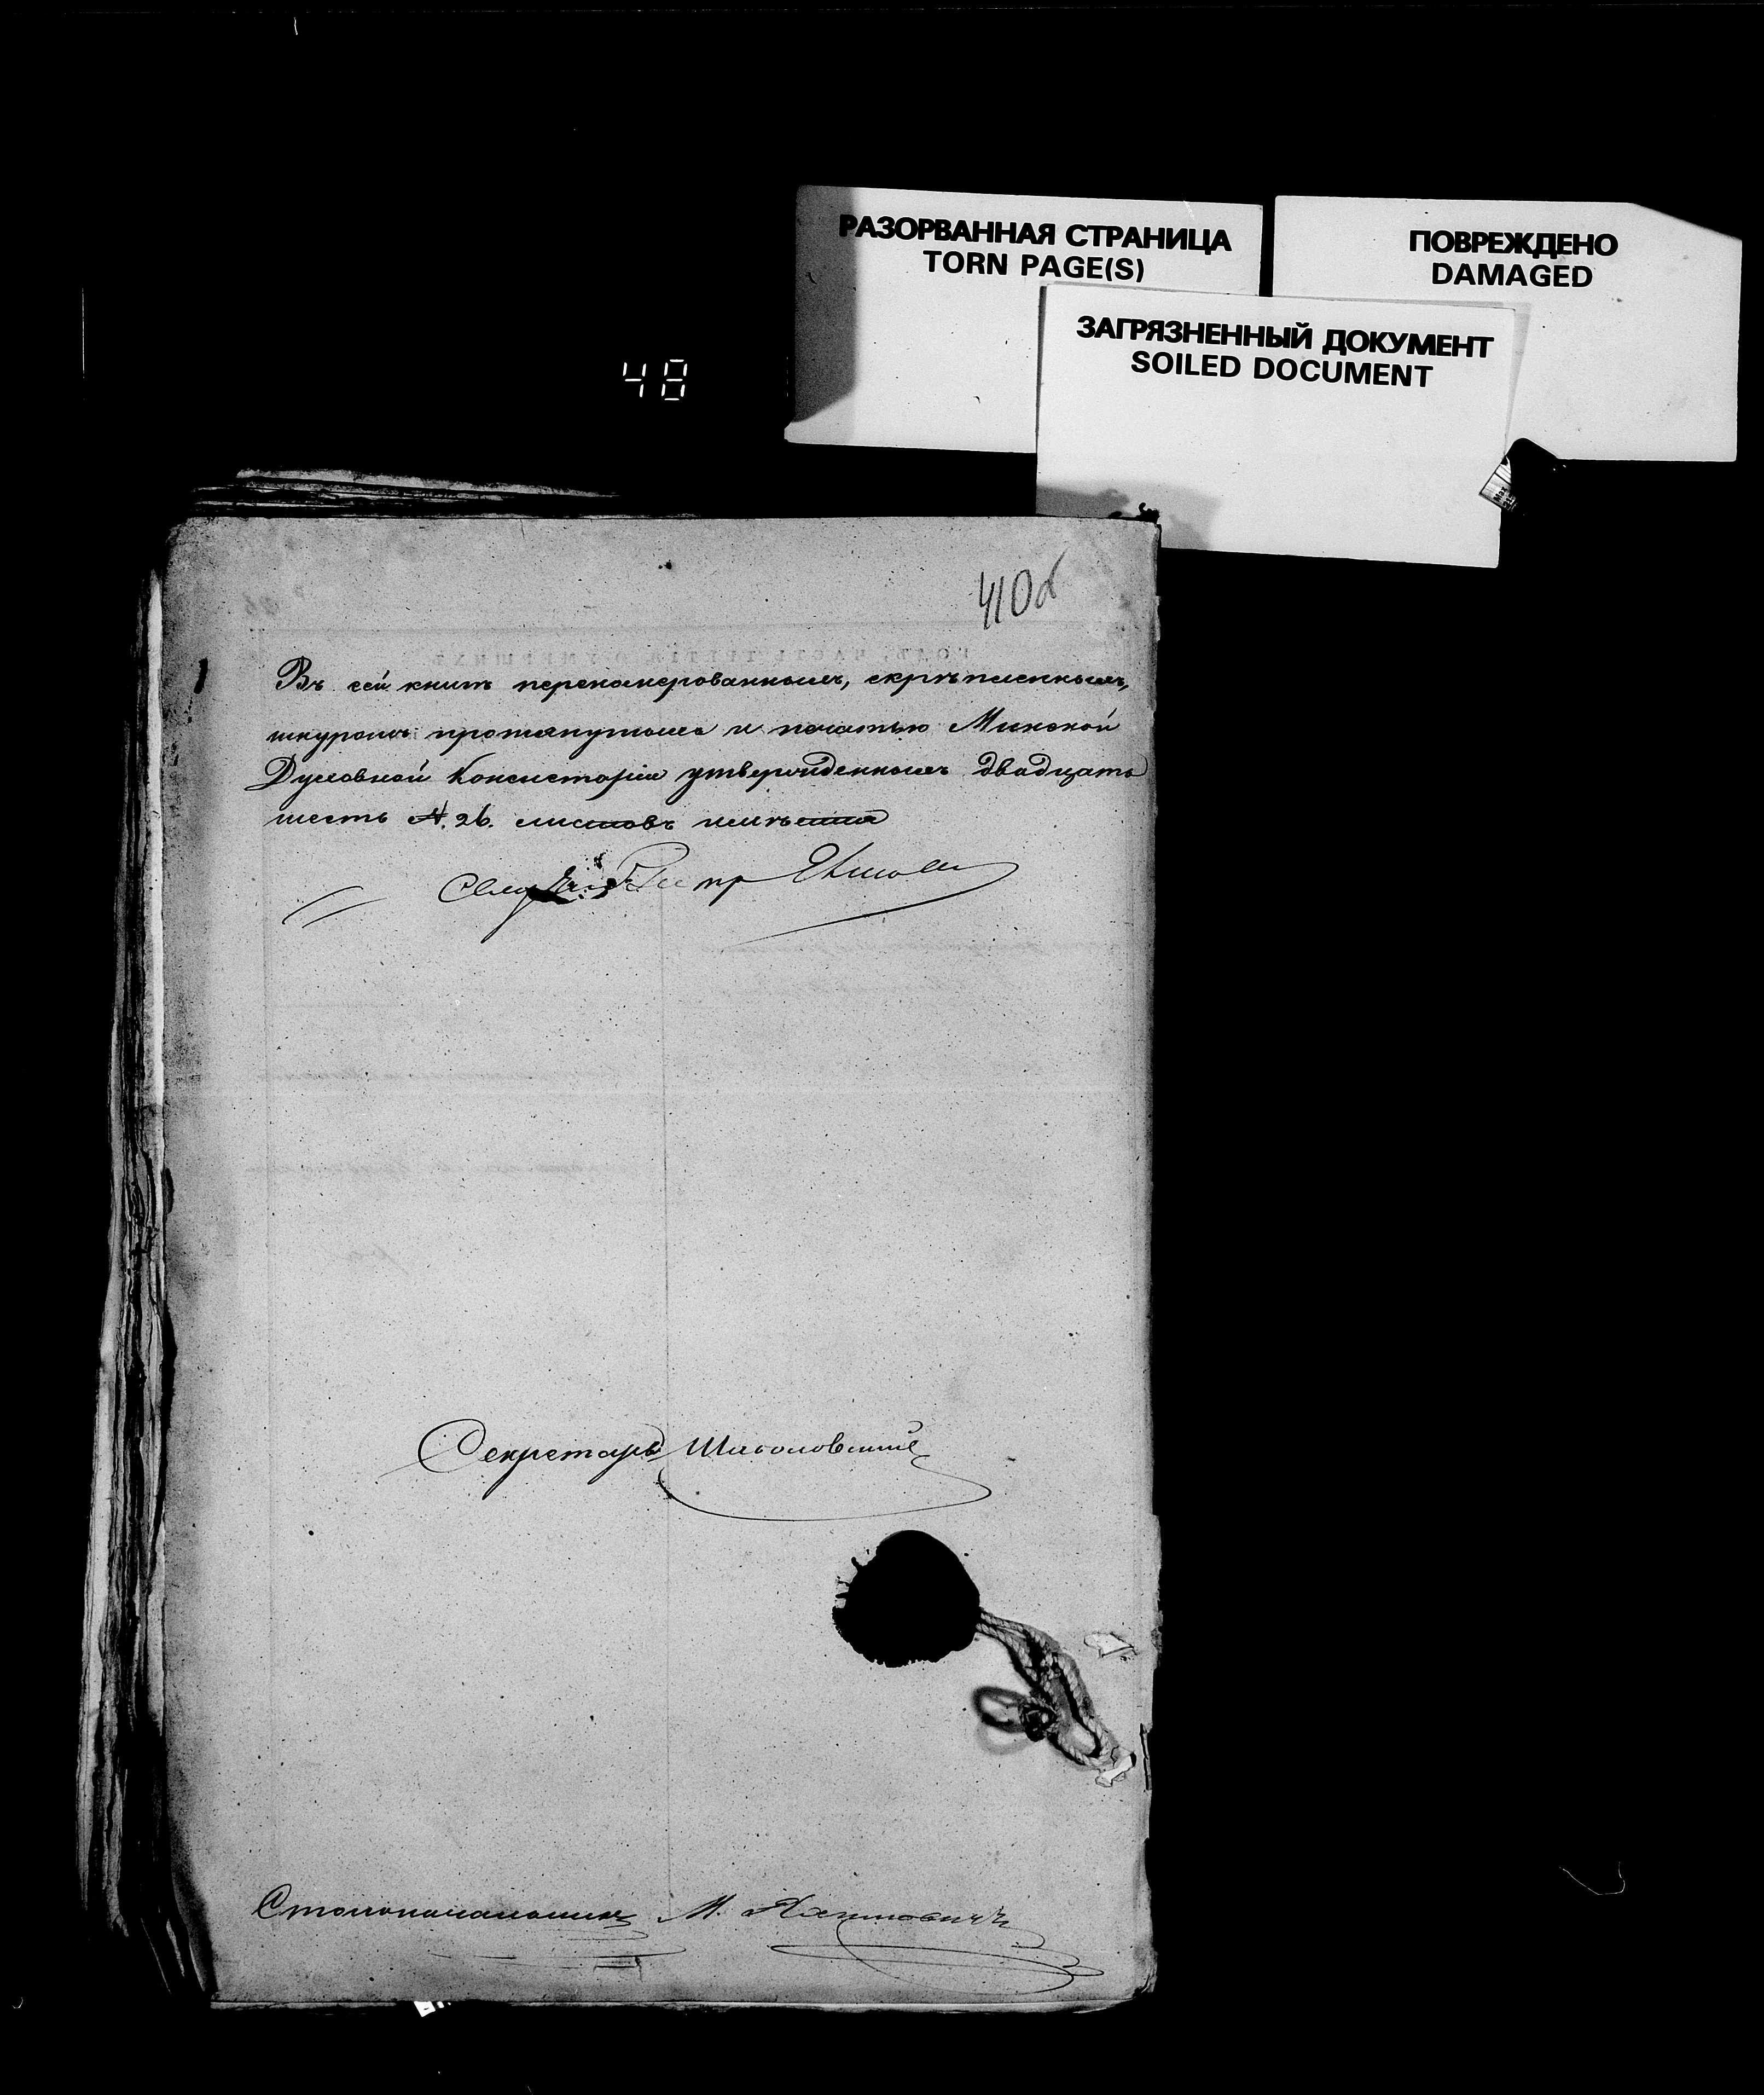 РАЗОРВАННАЯ СТРАНИЦА
TORN PAGE(S)
ПОВРЕЖДЕНО
DAMAGED
ЗАГРЯЗНЕННЫЙ ДОКУМЕНТ
SOILED DOCUMENT
48
410б
Въ сей книгѣ перенумерованныхъ, скрѣпленныхъ,
шнуромъ протянутыхъ и печатью Минской
Духовной Консисторіи утвержденныхъ двадцать
шесть N. 26. листовъ
Секретарь
Столоначальникъ М.